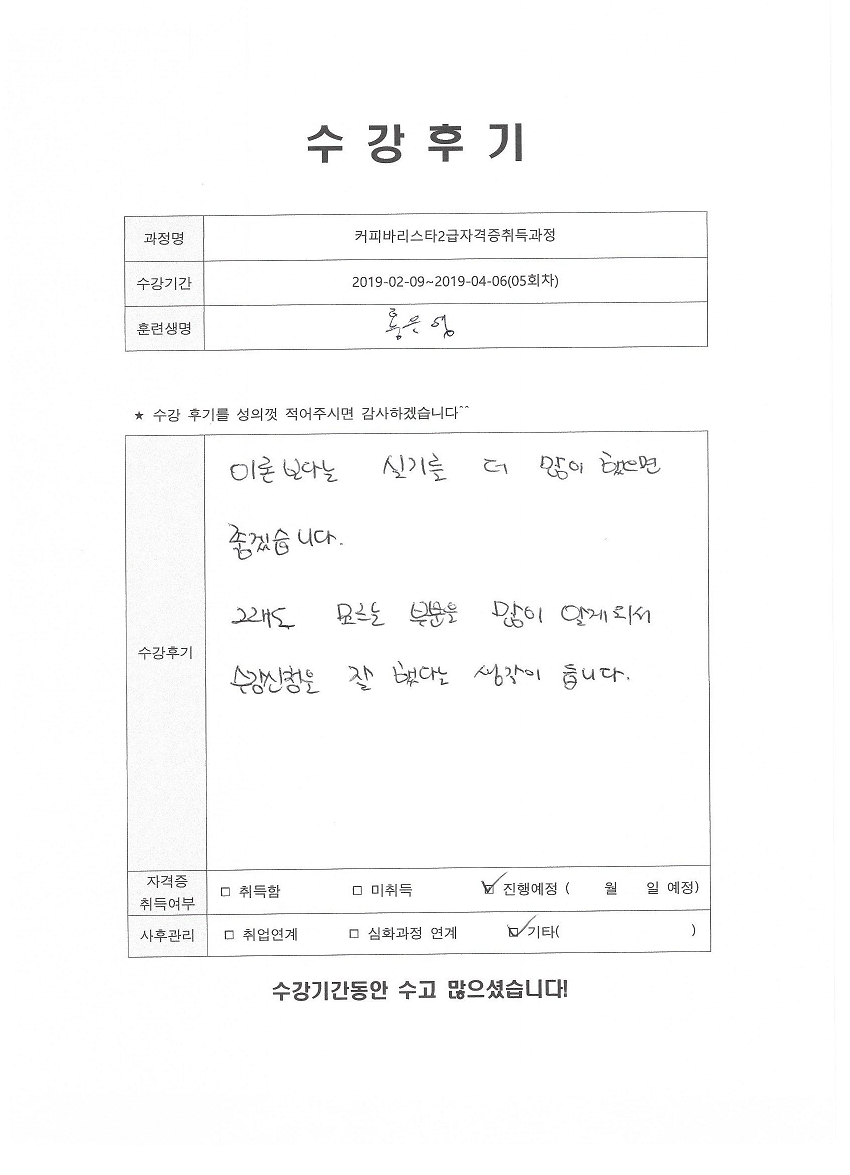 수 강 후 기
과정명 커피바리스타2급자격증취득과정
수강기간 2019-02-09~2019-04-06(05회차)
훈련생명 홍은영
★ 수강 후기를 성의껏 적어주시면 감사하겠습니다^^
수강후기
이론보다는 실기를 더 많이 했으면
좋겠습니다.
그래도 모르는 부분을 많이 알게되서
수강신청을 잘 했다는 생각이 듭니다.
자격증
취득여부 □ 취득함 □ 미취득 ☑ 진행예정 ( 월 일 예정)
사후관리 □ 취업연계 □ 심화과정 연계 ☑ 기타( )
수강기간동안 수고 많으셨습니다!